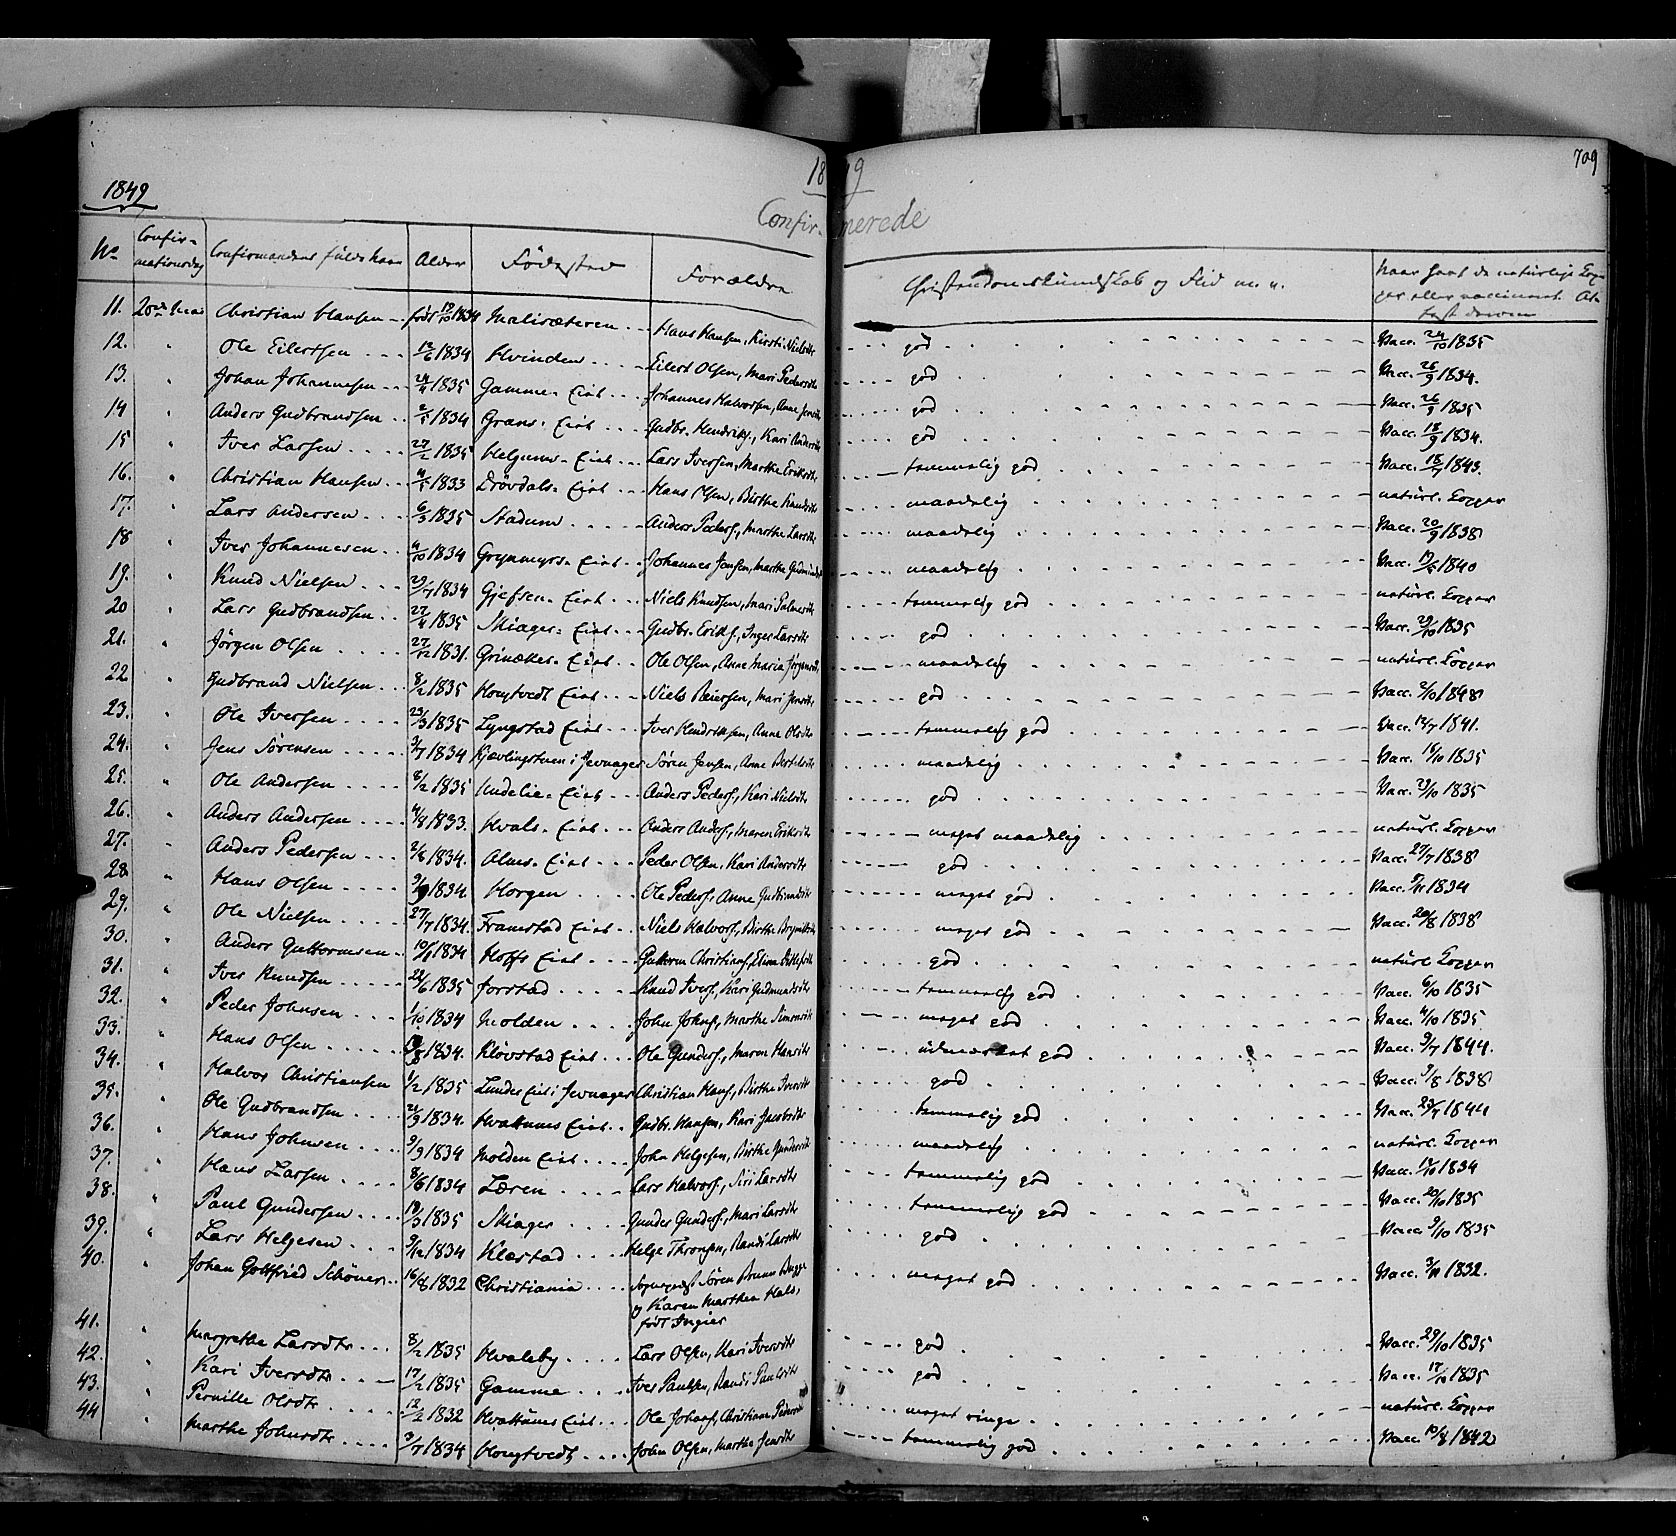 709
1849
1849
Confirmerede
No Confirmationsdag Confirmandens fulde Navn Alder Fødested Forældre Christendomskundskab og Flid m. v. naar havt de naturlige Kopper eller vaccineret Attest derom
11. Christian Hansen født 1834 Hans Hansen, Kirsti Nielsdtr god Vacc. 24/10 1835
12. Ole Eilertsen 12/6 1834 Hvinden Eilert Olsen, Mari Pedersdtr god Vacc. 26/9 1834.
13. Johan Johannesen 24/4 1835 Gamme-Eiet Johannes Halvorsen, Anne Jensdtr god Vacc. 26/9 1835
14 Anders Gudbrandsen 1834 Grans-Eiet Gudbr. Hendriks., Kari Andersdtr god Vacc. 18/9 1834.
15 Iver Larsen 27/2 1835 Helgums-Eiet Lars Iversen, Marthe Eriksdtr temmelig god Vacc. 1843.
16. Christian Hansen 1833 Drövdals-Eiet Hans Olsen, Birthe Knudsdtr maadelig naturl. Kopper
17. Lars Andersen 6/3 1835 Stadum Anders Peders., Marthe Larsdtr maadelig Vacc. 20/9 1838
18 Iver Johannesen 4/10 1834 Grynmyrs-Eiet Johannes Jensen, Marthe maadelig Vacc. 1840
19. Knud Nielsen 29/7 1834 Gjefsen-Eiet Niels Knudsen, Mari Palmesdtr temmelig god naturl. Kopper
20 Lars Gudbrandsen 22/4 1835 Skiager-Eiet Gudbr. Eriks., Inger Larsdtr god Vacc. 29/10 1835
21. Jörgen Olsen 27/12 1831. Grinakers-Eiet Ole Olsen, Anne Maria Jörgensdtr maadelig naturl. Kopper
22 Gudbrand Nielsen 8/2 1835 Hougtvedt Eiet Niels Reiersen, Mari Jensdtr god Vacc. 2/10 1848
23. Ole Iversen 23/3 1835 Lyngstad Eiet Iver Hendriksen, Anne Olsdtr temmelig god Vacc. 12/7 1841.
24. Jens Sörensen 3/7 1834 Kjevlingsteen i Jevnager Sören Jensen, Anne Bertelsdtr maadelig Vacc. 18/10 1835
25. Ole Andersen 8/2 1835 Andelie-Eiet Anders Peders., Kari Nielsdtr god Vacc. 23/10 1835
26. Anders Andersen 4/8 1833. Hvals-Eiet Anders Anders., Maren Eriksdtr meget maadelig naturl. Kopper
27. Anders Pedersen 2/8 1834. Alms-Eiet Peder Olsen, Kari Andersdtr god Vacc. 27/7 1838
28 Hans Olsen 1834 Horgen Ole Peders., Anne Gudbrandsdtr meget god Vacc. 5/11 1834
29. Ole Nielsen 27/7 1834. Framstad Eiet Niels Halvors., Birthe Brynildsdtr meget god Vacc. 20/8 1838
30. Anders Guttormsen 1834 Hoffs Eiet Guttorm Christians., Eline Ditlefsdtr god naturl. Kopper
31. Iver Knudsen 22/6 1835 Jorstad Knud Ivers., Kari Gudmundsdtr temmelig god Vacc. 6/10 1835
32. Peder Johnsen 1/10 1834 Molden John Johns., Marthe Simensdtr meget god Vacc. 4/10 1835
33. Hans Olsen 1834. Klövstad Eiet Ole Gunders., Maren Hansdtr udmærket god Vacc. 3/7 1844.
34. Halvor Christiansen 1/2 1835 Lundes Eiet i Jevnager Christian Hans., Birthe Iversdtr god Vacc. 9/8 1838
35. Ole Gudbrandsen 21/9 1834. Hvattums Eiet Gudbr. Hansen, Kari Jacobsdtr temmelig god Vacc. 1844
36. Hans Johnsen 9/9 1834 Molden Eiet John Helgesen, Birthe Gundersdtr maadelig naturl. Kopper
37. Hans Larsen 8/6 1834 Læren Lars Halvors., Siri Larsdtr temmelig god Vacc. 12/10 1834
38. Paul Gundersen 18/3 1835 Skiager Gunder Gunders., Mari Larsdtr temmelig god Vacc. 20/10 1835
39. Lars Helgesen 9/12 1834 Klæstad Helge Thronsen, Randi Larsdtr god Vacc. 9/10 1835
40. Johan Gottfried Schöner 16/8 1832 Christiania Sognepræst Sören Bruun Bugge meget god Vacc. 3/11 1832.
og Karen Marthea Hals,
født Ingier
41. Margrethe Larsdtr 8/2 1835 Hvaleby Lars Olsen, Kari Iversdtr god Vacc. 29/10 1835
42. Kari Iversdtr 17/2 1835 Gamme Iver Paulsen, Randi Paulsdtr god Vacc. 17/10 1835
43. Pernille Olsdtr 12/2 1832 Hvattums Eiet Ole Johans., Christiane Pedersdtr meget ringe naturl. Kopper
44 Marthe Johnsdtr 3/7 1834 Hougtvedt John Olsen, Marthe Jensdtr temmelig god Vacc. 10/8 1842